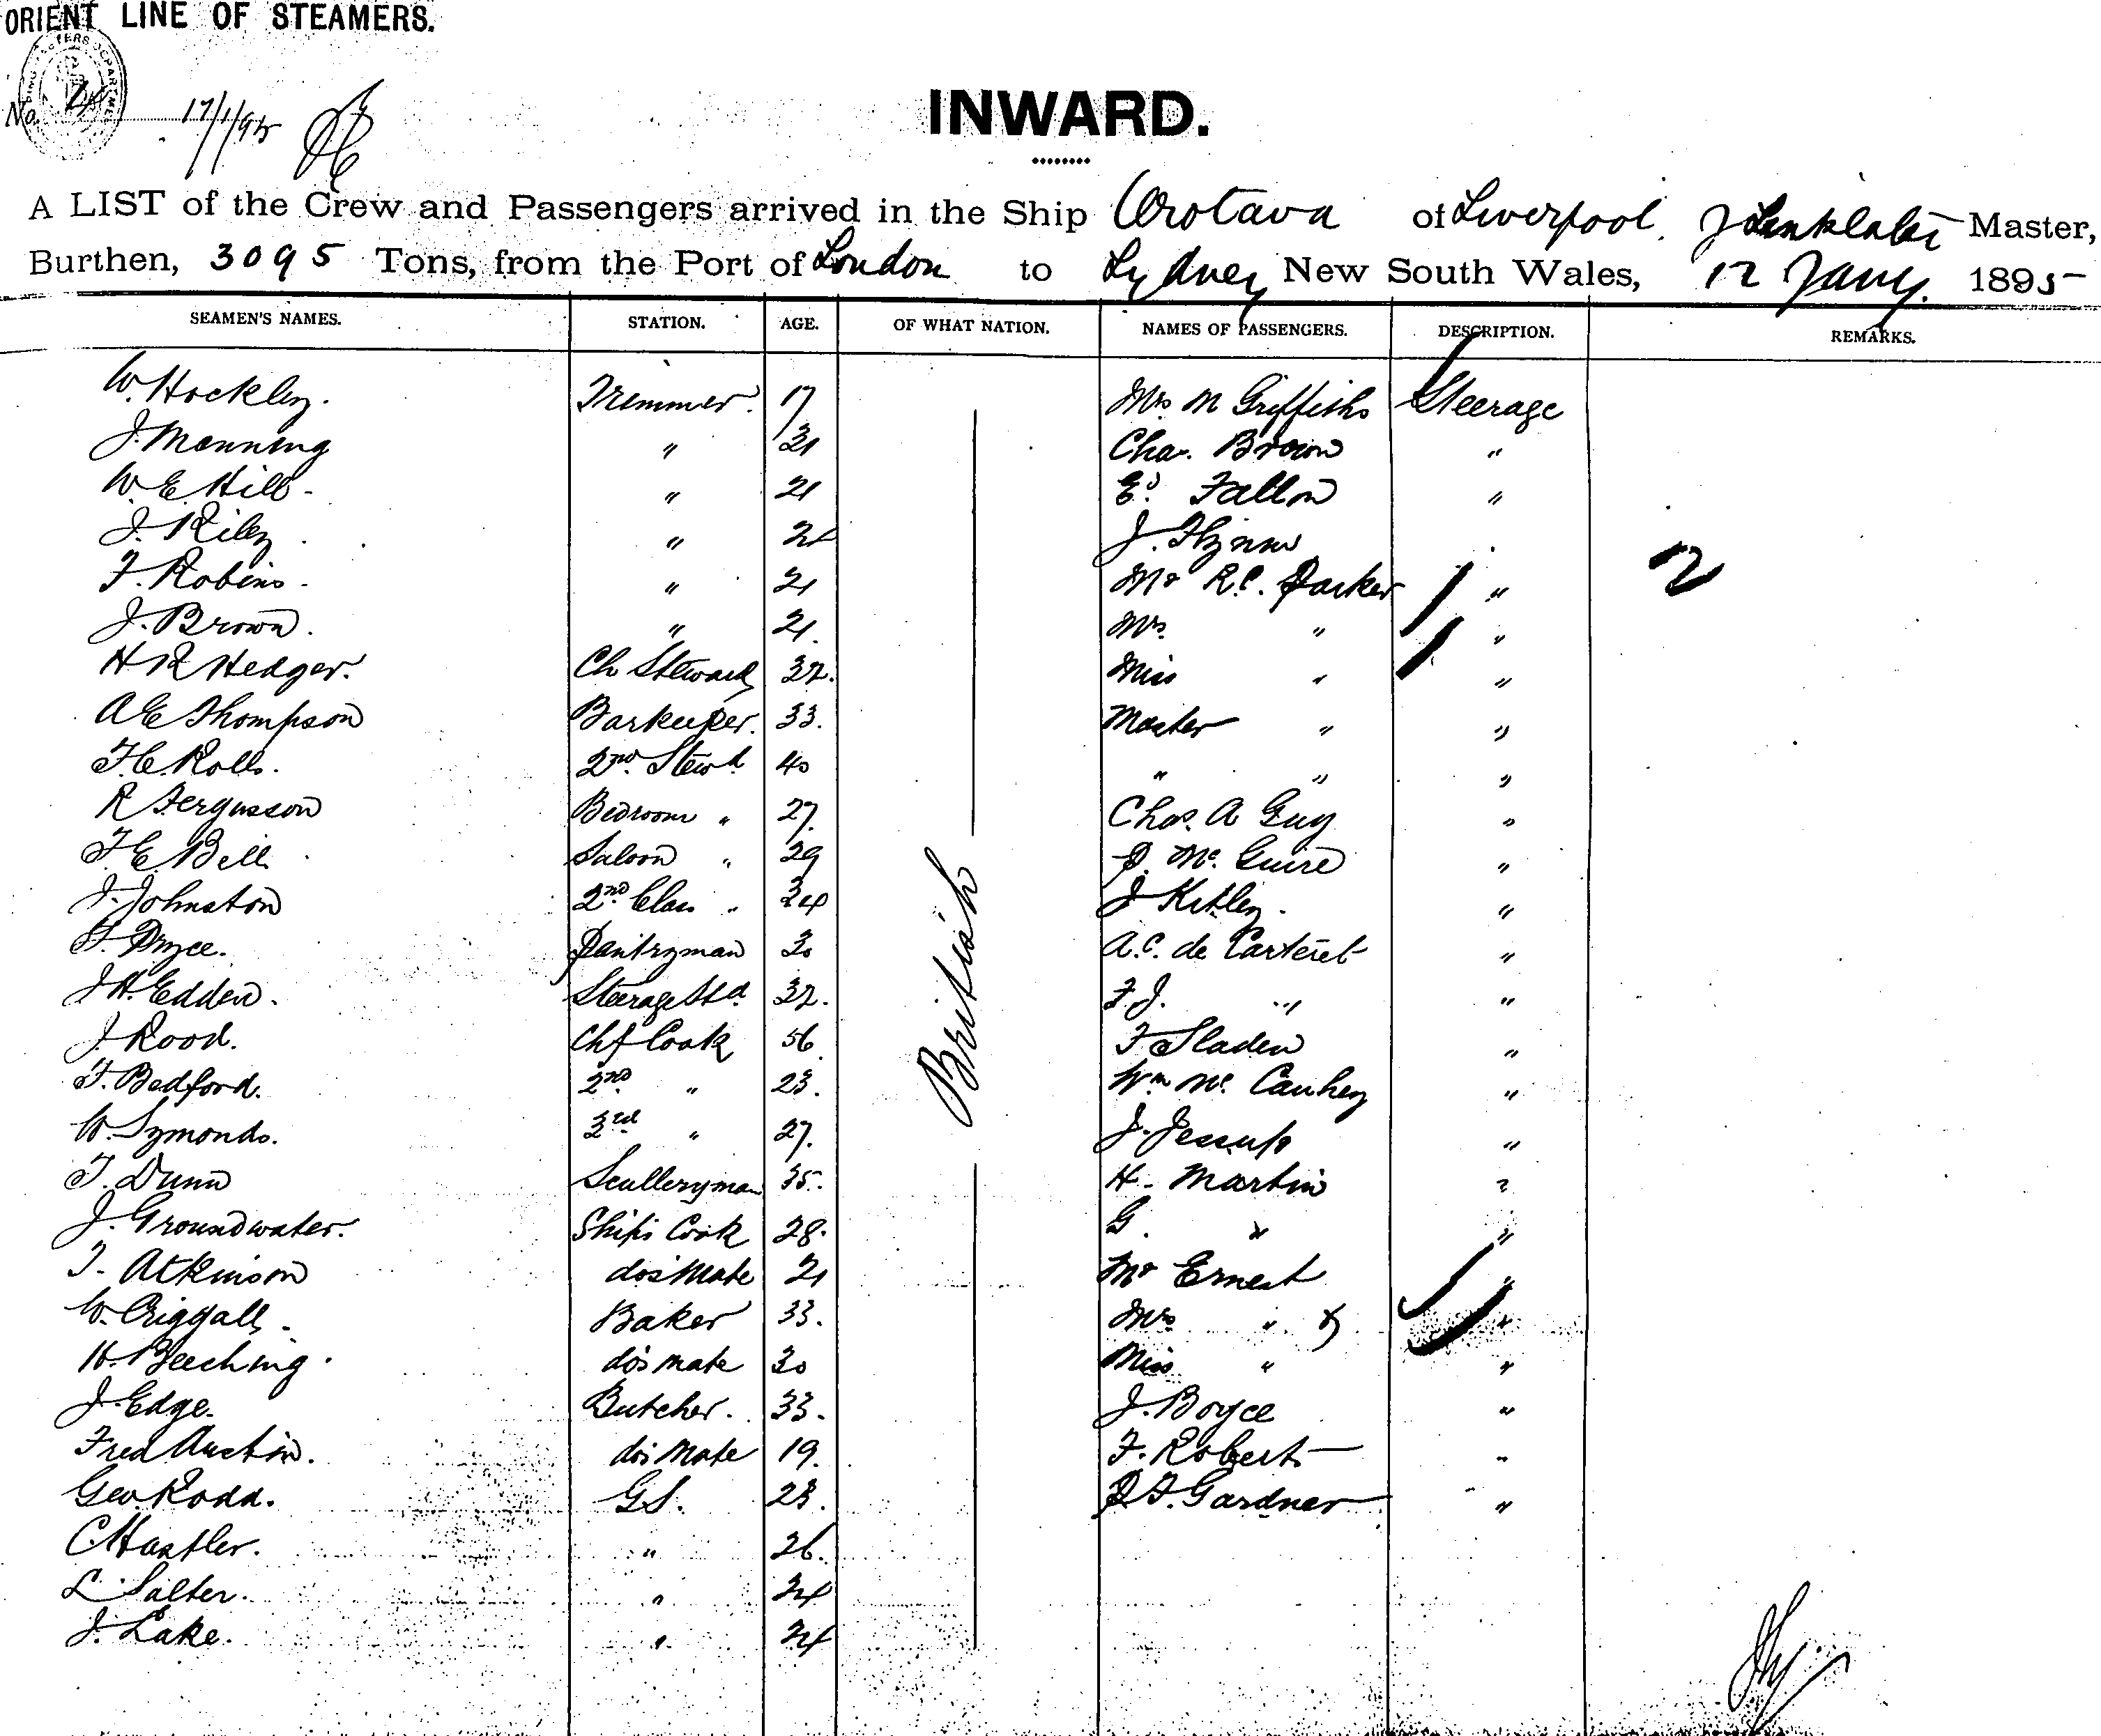 ORIENT LINE OF STEAMERS.
No. 17/1/95
INWARD.
A LIST of the Crew and Passengers arrived in the Ship Orotava of Liverpool. J Linklater Master,
Burthen, 3095 Tons, from the Port of London to Sydney New South Wales, 12 Jany. 1895
SEAMEN'S NAMES. STATION. AGE. OF WHAT NATION. NAMES OF PASSENGERS. DESCRIPTION. REMARKS.
W. Hockley. Trimmer. 17 Mrs M Griffiths Steerage
J. Manning " 31 Chas. Brown "
W. E. Hill - " 21 Ed. Fallon "
J. Riley " J. Flynn
F. Robins - " 21 Mr R.C. Parker "
J. Brown. " 21. Mrs. " "
H R Hedger. Ch Steward 32. Miss " "
A E Thompson Barkeeper. 33. Master " "
F. C. Rolls. 2nd. Stewd. 40 " " "
R Fergusson Bedroom " 27. Chas. A Guy "
F. E. Bell Saloon " 29 P. Mc. Guire "
J. Johnston 2nd Class " 34 J Kitley. "
T. Pryce. Pantryman 30 A.C. de Carteret "
J H. Edden. Steerage Std 32. F. J. " "
J. Rood. Chf Cook 56 F Sladen "
F. Bedford. 2nd " 23. Wm Mc. Cauhey "
W. Symonds. 3rd " 27. J. Jessup "
T. Dunn Sculleryman 35. H. Martin "
J. Groundwater. Ships Cook 28. G. " "
T. Atkinson do's Mate 21 Mr Ernest "
W. Criggall - Baker 33. Mrs " "
H. Beeching. do's mate 30 Miss " "
J. Edge. Butcher. 33. J. Boyce "
Fred Austin. do's Mate 19. F. Roberts "
Geo. Rodd. G.S. 23. P. F. Gardner "
C. Hastler. " 26.
L. Salter. " 24
J. Lake. " 24
British